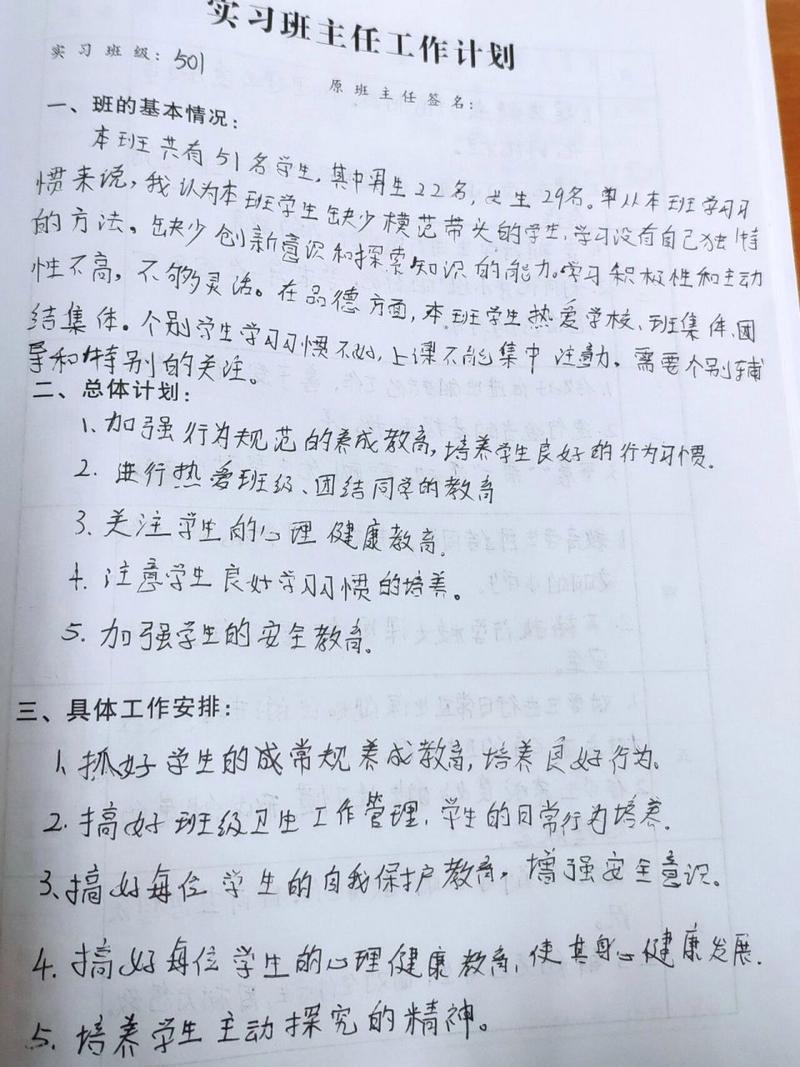 实习班主任工作计划
实习班级：501
原班主任签名：
一、班的基本情况：
本班共有51名学生，其中男生22名，女生29名。单从本班学习习
惯来说，我认为本班学生缺少模范带头的学生，学习没有自己独特
的方法。缺少创新意识和探索知识的能力。学习积极性和主动
性不高，不够灵活。在品德方面，本班学生热爱学校、班集体，团
结集体。个别学生学习习惯不好，上课不能集中注意力，需要个别辅
导和特别的关注。
二、总体计划：
1.加强行为规范的养成教育，培养学生良好的行为习惯.
2. 进行热爱班级、团结同学的教育
3. 关注学生的心理健康教育.
4. 注意学生良好学习习惯的培养。
5. 加强学生的安全教育.
三、具体工作安排：
1.抓好学生的成常规养成教育，培养良好行为.
2. 搞好班级卫生工作管理，学生的日常行为培养.
3.搞好每位学生的自我保护教育，增强安全意识。
4. 搞好每位学生的心理健康教育，使其身心健康发展.
5. 培养学生主动探究的精神。